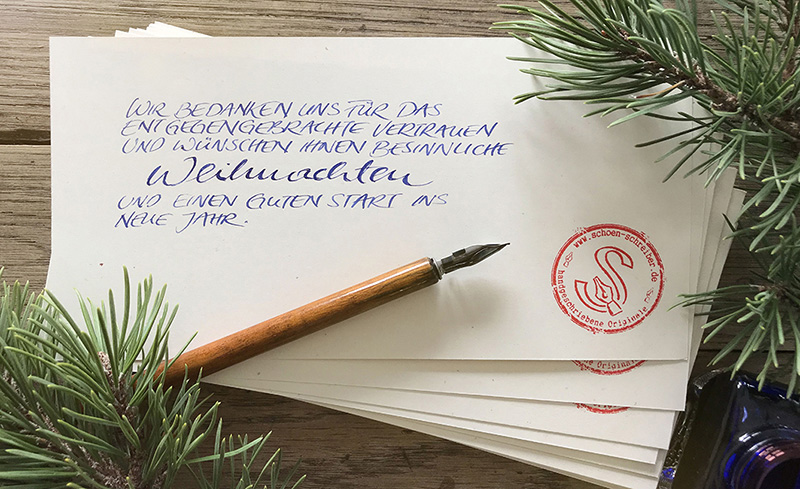 WIR BEDANKEN UNS FÜR DAS
ENTGEGENGEBRACHTE VERTRAUEN
UND WÜNSCHEN IHNEN BESINNLICHE
Weihnachten
UND EINEN GUTEN START INS
NEUE JAHR.
www.schoen-schreiber.de
S
handgeschriebene Originale
Originale